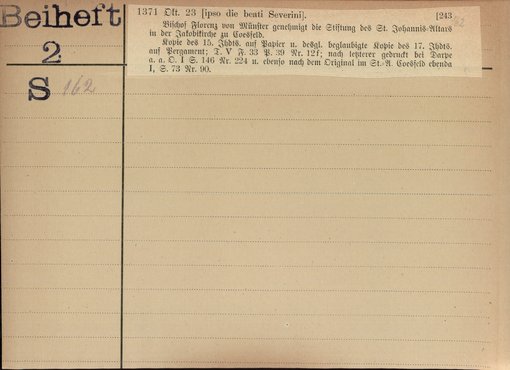 Beiheft
2
S 162
1371 Okt. 23 [ipso die beati Severini]. [243
Bischof Florenz von Münster genehmigt die Stiftung des St. Johannis-Altars
in der Jakobikirche zu Coesfeld.
Kopie des 15. Jhdts. auf Papier u. desgl. beglaubigte Kopie des 17. Jhdts.
auf Pergament; T. V F. 33 P. 39 Nr. 12f; nach letzterer gedruckt bei Darpe
a. a. O. I S. 146 Nr. 224 u. ebenso nach dem Original im St.-A. Coesfeld ebenda
I, S. 73 Nr. 90.